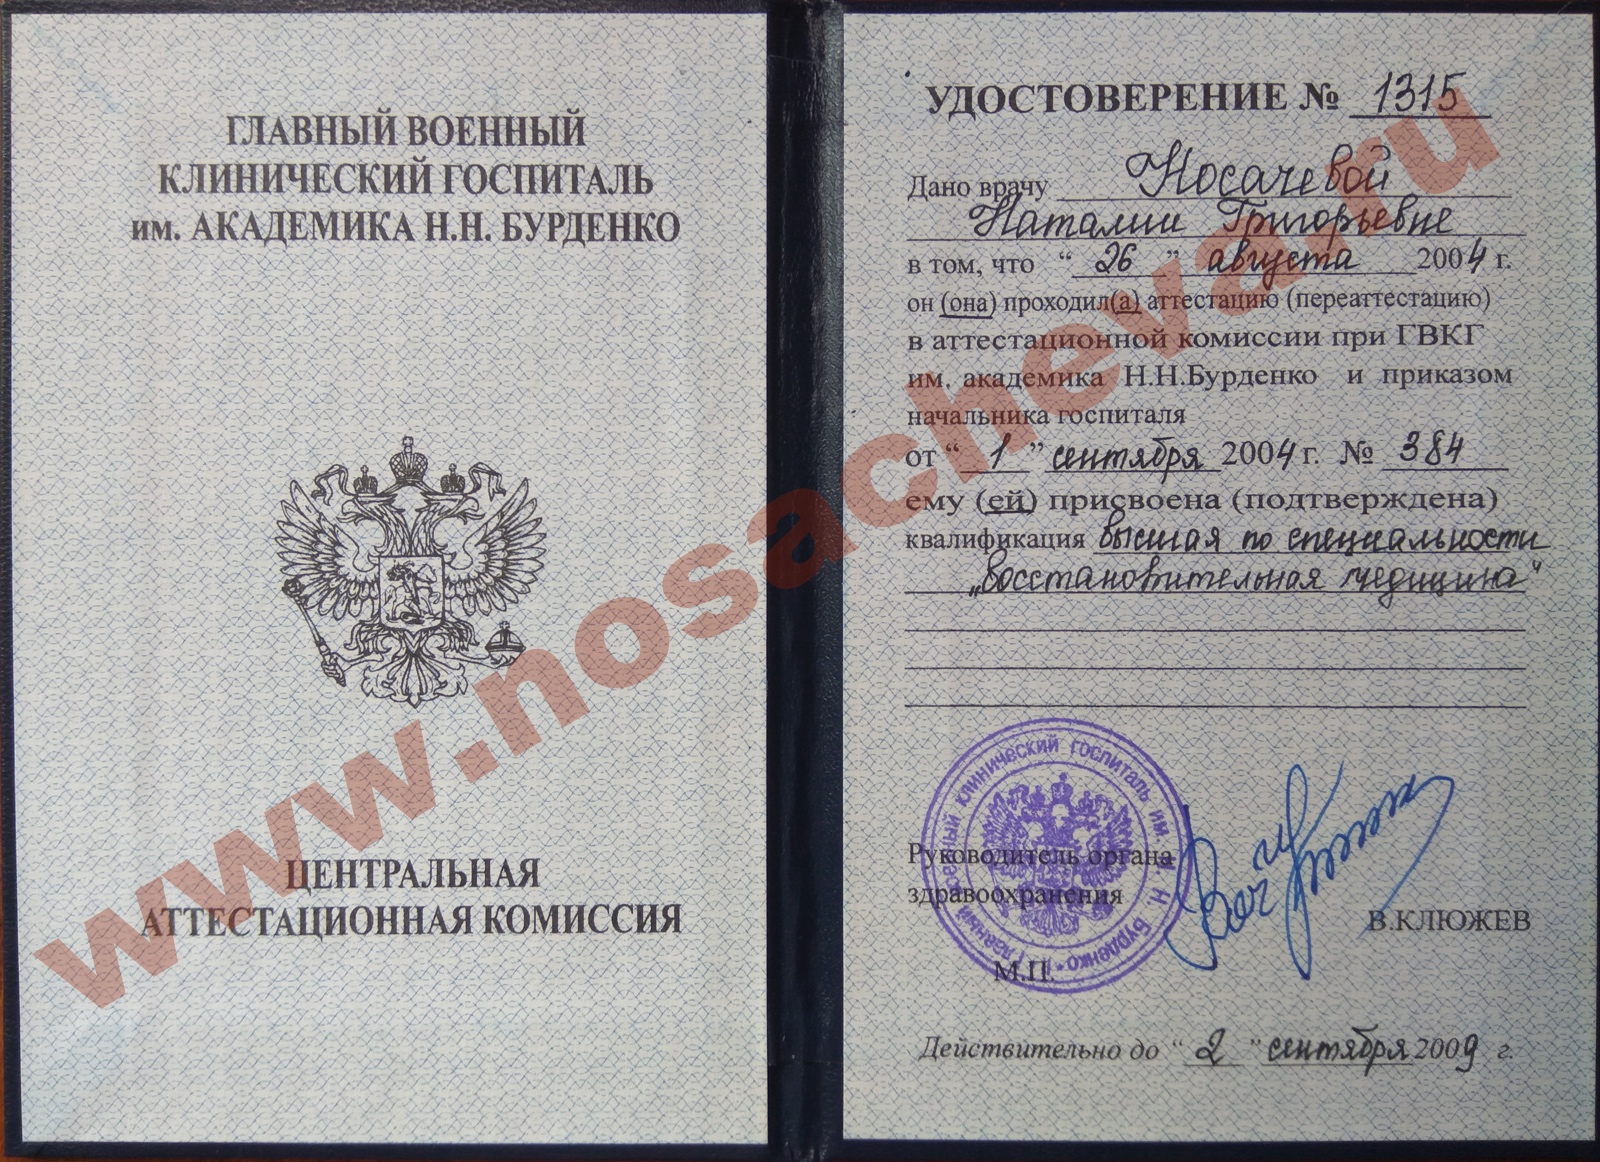 ГЛАВНЫЙ ВОЕННЫЙ
КЛИНИЧЕСКИЙ ГОСПИТАЛЬ
им. АКАДЕМИКА Н.Н. БУРДЕНКО
ЦЕНТРАЛЬНАЯ
АТТЕСТАЦИОННАЯ КОМИССИЯ
УДОСТОВЕРЕНИЕ № 1315
Дано врачу Носачевой
Наталии Григорьевне
в том, что “ 26 ” августа 2004 г.
он (она) проходил(а) аттестацию (переаттестацию)
в аттестационной комиссии при ГВКГ
им. академика Н.Н.Бурденко и приказом
начальника госпиталя
от “ 1 ” сентября 2004 г. № 384
ему (ей) присвоена (подтверждена)
квалификация высшая по специальности
„Восстановительная медицина“
Главный военный клинический госпиталь им. Н. Н. Бурденко *
Руководитель органа
здравоохранения
В.КЛЮЖЕВ
М.П.
Действительно до “ 2 ” сентября 2009 г.
www.nosacheva.ru